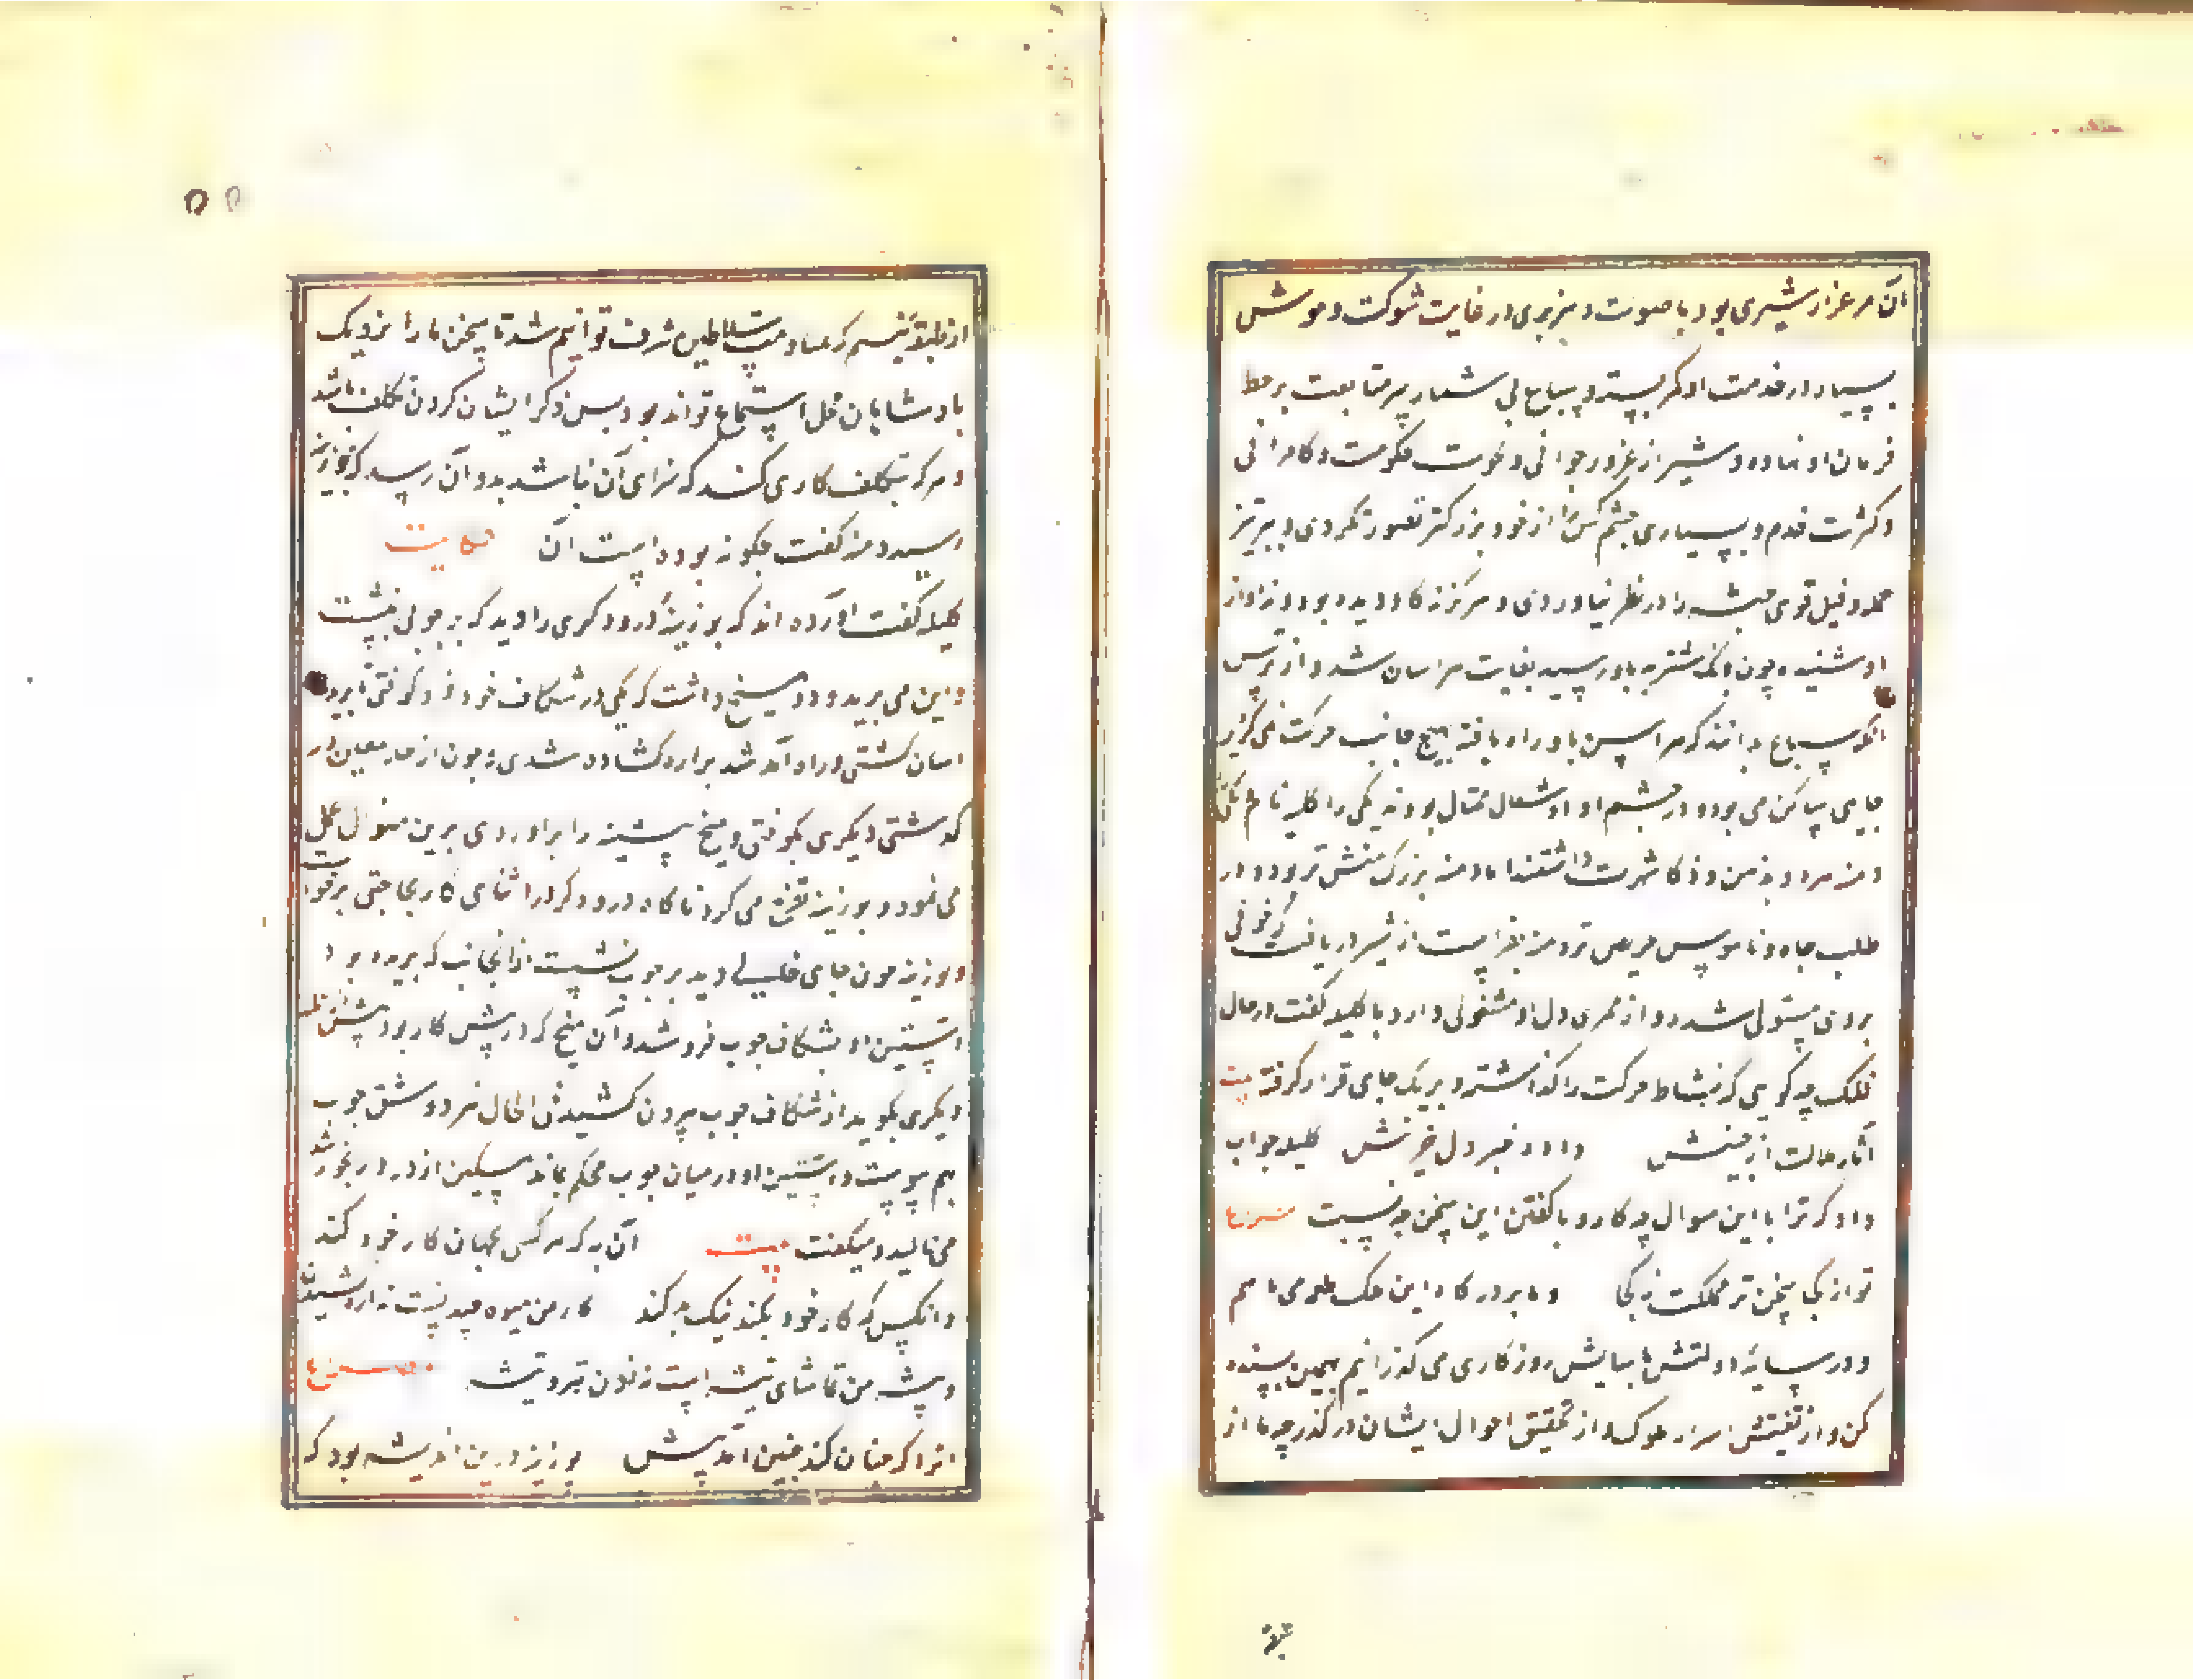 آن مرغزار شیری بود با صولت و هزبری در غایت شوکت وحوش
بسیار در خدمت او کمر بسته و سباع بی شمار سر متابعت بر خط
فرمان او نهاده و شیر از غرور جوانی و نخوت حکومت و کامرانی
و کثرت خدم و بسیاری حشم کس را از خود بزرگتر تصور نکردی و ببر تیز
حمله و فیل قوی جثه را در نظر نیاوردی و هرگز نه گاو دیده بود و نه آواز
او شنیده چون بانگ شتربه باو رسید بغایت هراسان شد و از ترس
آنکه سباع بدانند که هراس باو راه یافته بهیچ جانب حرکت نمی کرد بر
جای ساکن می بود و در حشم او دو شغال محتال بودند یکی را کلیله نام
دمنه هر دو بذهن و ذکا شهرت داشتند اما دمنه بزرگ منش تر بود و در
طلب جاه و ناموس حریص تر دمنه بفراست از شیر دریافت که خوفی
بروی مستولی شده و از ممری دل او مشغولی دارد با کلیله گفت در حال
ملک چه گویی که نشاط حرکت را گذاشته و بر یک جای قرار گرفته بیت
آثار ملالت از جبینش داده خبر دل حزینش کلیله جواب
داد که ترا با این سوال چه کار و با گفتن این سخن چه نسبت مصرع
تو از کجا سخن سر مملکت ز کجا و ما بر درگاه این ملک طعمه می یابیم
و در سایه دولتش بآسایش روزگاری می گذرانیم بهمین بسنده
کن و از تفتیش اسرار ملوک و از تحقیق احوال ایشان درگذر چه ما از
از طبقه نیستیم که بمنادمت سلاطین مشرف توانیم شد تا سخن ما را نزدیک
پادشاهان محل استماع تواند بود پس ذکر ایشان کردن تکلف باشد
و هر که بتکلف کاری کند که سزای آن نباشد بدو آن رسد که ببوزینه
رسید دمنه گفت چگونه بوده است آن حکایت
کلیله گفت آورده اند که بوزینه درودگری را دید که بر چوبی نشسته
و این می برید و دو میخ داشت که یکی در شکاف خود فرو کوفتی تا برید
آسان گشتی و راه آمد شد بر اره گشاده شدی و چون از حد معین در
گذشتی دیگری بکوفتی و میخ پیشینه را برآوردی برین منوال عمل
می نمود و بوزینه تفرج می کرد ناگاه درودگر در اثنای کار بحاجتی برخواست
بوزینه چون جای خالی دید بر چوب نشست از آنجانب که بریده بود
دیگری بکوبد از شکاف چوب بیرون کشید فی الحال هر دو شق چوب
بهم پیوست و او در میان چوب محکم بماند مسکین از درد رنجور شد
می نالید و میگفت بیت آن به که هر کس بجهان کار خود کند
و آنکس که کار خود نکند نیک بد کند کار من میوه چیدنست نه اره کشیدن
و پیشه من تماشای بیشه است نه زدن تبر و تیشه مصرع
آنرا که چنان کند چنین آید پیش بوزینه درین اندیشه بود که